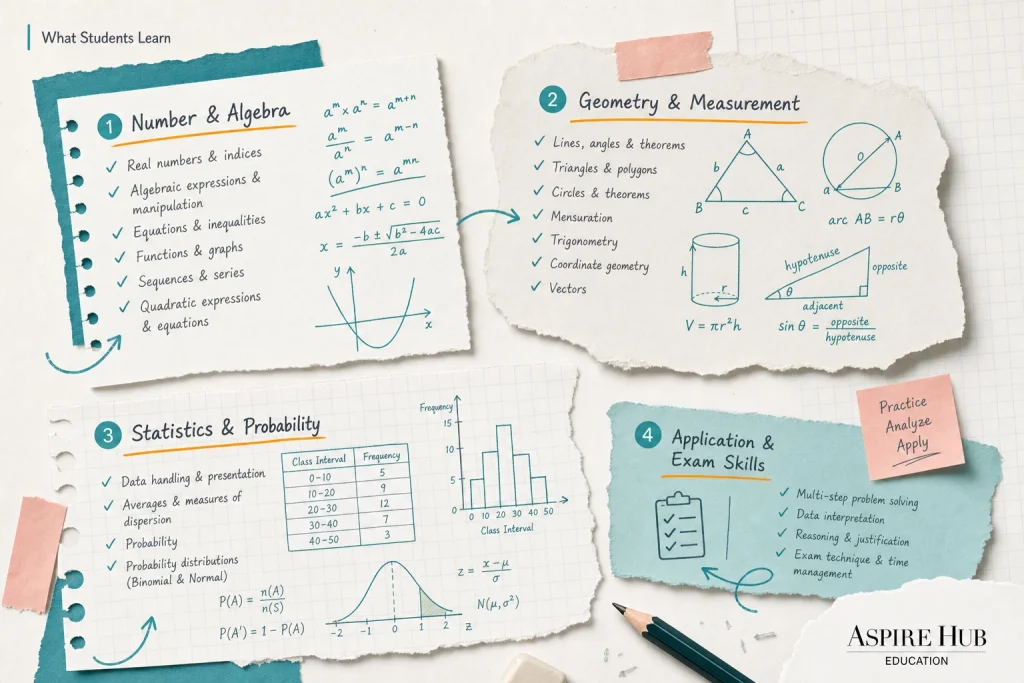 What Students Learn
1 Number & Algebra
✓ Real numbers & indices
✓ Algebraic expressions &
manipulation
✓ Equations & inequalities
✓ Functions & graphs
✓ Sequences & series
✓ Quadratic expressions
& equations
aᵐ × aⁿ = aᵐ⁺ⁿ
aᵐ/aⁿ = aᵐ⁻ⁿ
(aᵐ)ⁿ = aᵐⁿ
ax² + bx + c = 0
x = (-b ± √(b² - 4ac))/2a
y
x
2 Geometry & Measurement
✓ Lines, angles & theorems
✓ Triangles & polygons
✓ Circles & theorems
✓ Mensuration
✓ Trigonometry
✓ Coordinate geometry
✓ Vectors
A
b a
B c C
A
O
a B
arc AB = rθ
h
r
V = πr²h
hypotenuse
opposite
θ
adjacent
sin θ = opposite/hypotenuse
3 Statistics & Probability
✓ Data handling & presentation
✓ Averages & measures of
dispersion
✓ Probability
✓ Probability distributions
(Binomial & Normal)
P(A) = n(A)/n(S)
P(A') = 1 - P(A)
Class Interval Frequency
0-10 5
10-20 9
20-30 12
30-40 7
40-50 3
Frequency
15
10
5
0
0 10 20 30 40 50
Class Interval
-2 -1 0 1 2 z
z = (x - μ)/σ
N(μ, σ²)
4 Application &
Exam Skills
✓ Multi-step problem solving
✓ Data interpretation
✓ Reasoning & justification
✓ Exam technique & time
management
Practice
Analyze
Apply
ASPIRE HUB
EDUCATION